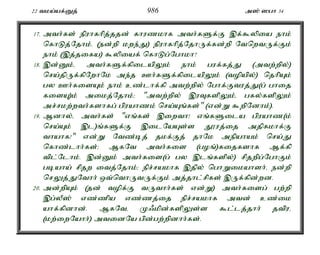 22 வமய்யக்னுத் 986 அஸ் ஸபா 34
17. அவர்கள் நிராகரித்ததன் காரணமாக அவர்களுக்கு இக்கூலியை நாம்
கொடுத்தோம். (நன்றி மறந்து) நிராகரித்தோருக்கன்றி வேறெவருக்கும்
நாம் (இத்தகைய) கூலியைக் கொடுப்போமா!
18. இன்னும், அவர்களுக்கிடையிலும் நாம் பரக்கத்து (அவற்றில்)
செய்திருக்கிறோமே அந்த ஊர்களுக்கிடையிலும் (வழியில்) தெரியும்
பல ஊர்களையும் நாம் உண்டாக்கி அவற்றில் போக்குவரத்துப் பாதை
களையும் அமைத்தோம்: "அவற்றில் இரவுகளிலும், பகல்களிலும்
அச்சமற்றவர்களாகப் பிரயாணம் செய்யுங்கள்" (என்று கூறினோம்).
19. ஆனால், அவர்கள் "எங்கள் இறைவா! எங்களுடைய பிரயாண(ம்
செய்யும் இட)ங்களுக்கு இடையேயுள்ள தூரத்தை அதிகமாக்கு
வாயாக!" என்று வேண்டித் தமக்குத் தாமே அநியாயம் செய்து
கொண்டார்கள்; ஆகவே அவர்களை (பழங்)கதைகளாக ஆக்கி
விட்டோம். இன்னும் அவர்களை(ப் பல இடங்களில்) சிதறிப்போகும்
படியாய் சிதற வைத்தோம்; நிச்சயமாக இதில் பொறுமையாளர், நன்றி
செலுத்துவோர் ஒவ்வொருவருக்கும் அத்தாட்சிகள் இருக்கின்றன.
20. அன்றியும் (தன் வழிக்கு வருவார்கள் என்று) அவர்களைப் பற்றி
இப்லீஸ் எண்ணிய எண்ணத்தை நிச்சயமாக அவன் உண்மை
யாக்கினான். ஆகவே, முஃமின்களிலுள்ள கூட்டத்தார் தவிர,
(மற்றையோர்) அவனையே பின்பற்றினார்கள்.